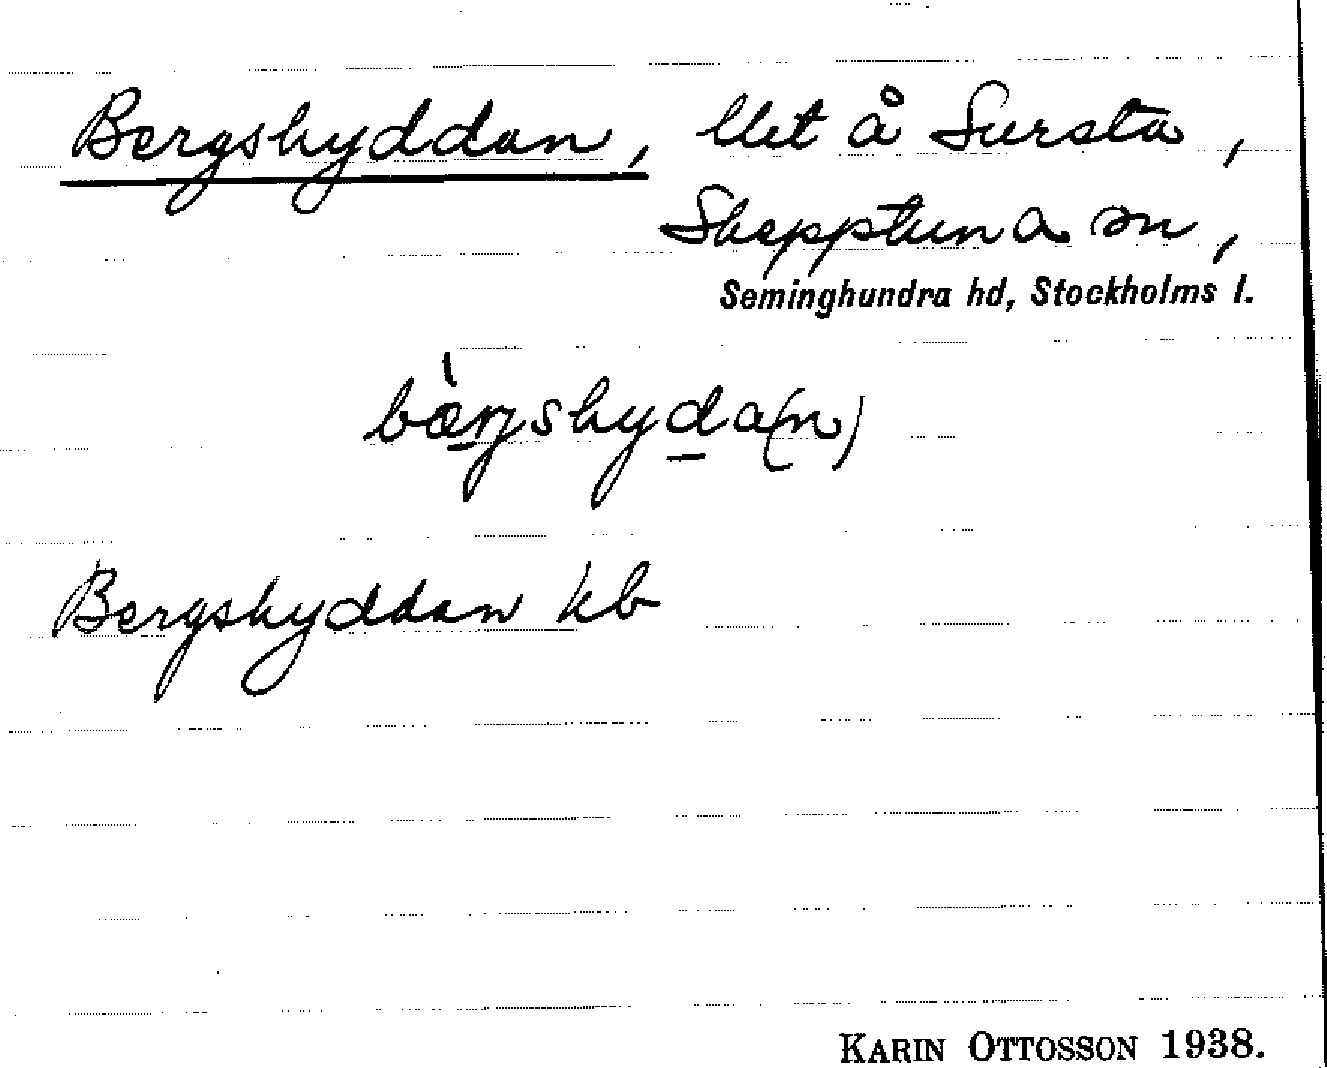 Bergshyddan, lht å Sursta,
Skepptuna sn,
Seminghundra hd, Stockholms l.
bæ̀rjshyda(n)
Bergshyddan kb
KARIN OTTOSSON 1938.